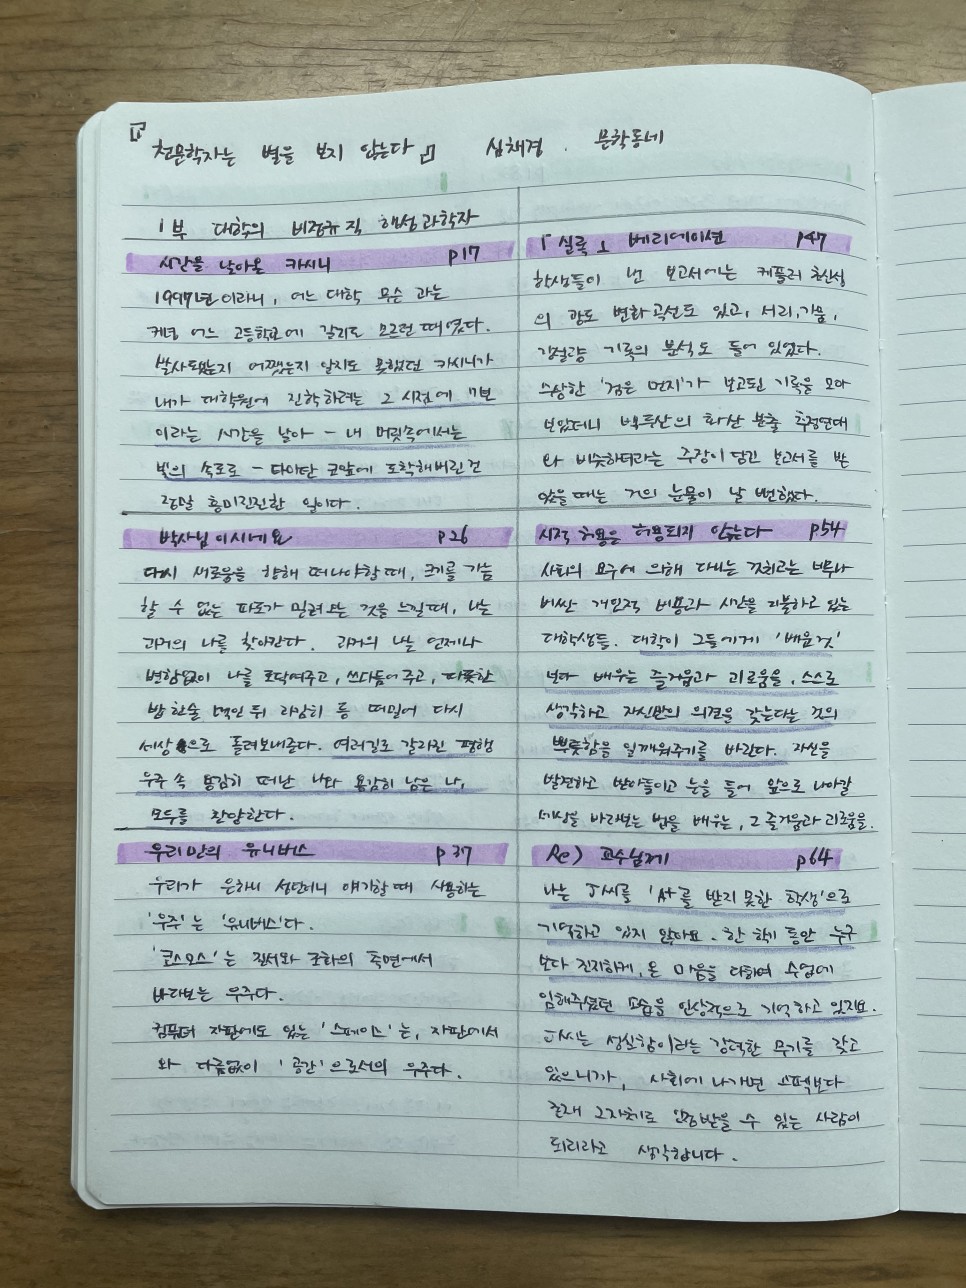 『천문학자는 별을 보지 않는다』 심채경. 문학동네
1부 대학의 비정규직 행성과학자
시간을 날아온 카시니 p17
1997년이라니, 어느 대학 무슨 과는
커녕 어느 고등학교에 갈지도 모르던 때였다.
발사됐는지 어쨌는지 알지도 못했던 카시니가
내가 대학원에 진학하려는 그 시점에 7년
이라는 시간을 날아 - 내 머릿속에서는
빛의 속도로 - 타이탄 코앞에 도착해버린 건
정말 흥미진진한 일이다.
박사님이시네요 p26
다시 새로움을 향해 떠나야할 때, 크기를 가늠
할 수 없는 파도가 밀려오는 것을 느낄때, 나는
과거의 나를 찾아간다. 과거의 나는 언제나
변함없이 나를 토닥여주고, 쓰다듬어 주고, 따뜻한
밥 한술 먹인 뒤 과감히 등 떠밀어 다시
세상으로 돌려보내준다. 여러길로 갈라진 평행
우주 속 용감히 떠난 나와 용감히 남은 나,
모두를 찬양한다.
우리만의 유니버스 p37
우리가 은하니 성단이니 얘기할 때 사용하는
'우주'는 '유니버스'다.
'코스모스'는 질서와 조화의 측면에서
바라보는 우주다.
컴퓨터 자판에도 있는 '스페이스'는, 자판에서
와 다름없이 '공간'으로서의 우주다.
「실록」 베리에이션 p47
학생들이 낸 보고서에는 케플러 초신성
의 광도 변화 곡선도 있고, 서리, 가뭄,
강설량 기록의 분석도 들어 있었다.
수상한 '검은 먼지'가 보고된 기록을 모아
보았더니 백두산의 화산 분출 추정연대
와 비슷하더라는 주장이 담긴 보고서를 받
았을 때는 거의 눈물이 날 뻔했다.
시적 허용은 허용되지 않는다 p.54
사회의 요구에 의해 다니는 것치고는 너무나
비싼 개인적 비용과 시간을 지불하고 있는
대학생들. 대학이 그들에게 '배운 것'
보다 배우는 즐거움과 괴로움을, 스스로
생각하고 자신만의 의견을 갖는다는 것의
뿌듯함을 일깨워주기를 바란다. 자신을
발견하고 받아들이고 눈을 들어 앞으로 나아갈
세상을 바라보는 법을 배우는, 그 즐거움과 괴로움을.
Re) 교수님께 p64
나는 J씨를 'A+를 받지 못한 학생'으로
기억하고 있지 않아요. 한 학기 동안 누구
보다 진지하게, 온 마음을 다하여 수업에
임해주셨던 모습을 인상적으로 기억하고 있지요.
J씨는 성실함이라는 강력한 무기를 갖고
있으니까, 사회에 나가면 스펙보다
존재 그 자체로 인정받을 수 있는 사람이
되리라고 생각합니다.